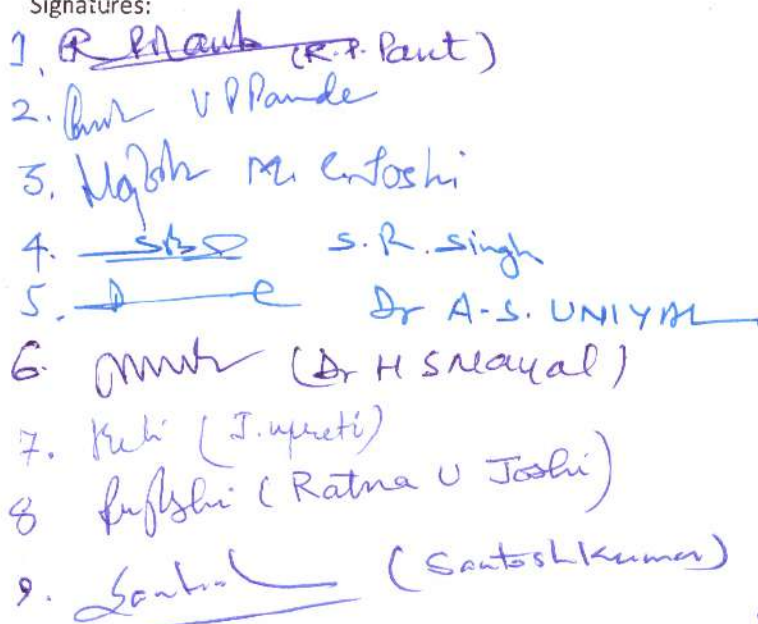 Signatures:
1. R P Pant (R.P. Pant)
2. V P Pande
3. M C Joshi
4. S. R. Singh
5. Dr A-S. UNIYAL
6. (Dr H S Nayal)
7. (J. upreti)
8 (Ratna U Joshi)
9. (Santosh Kumar)